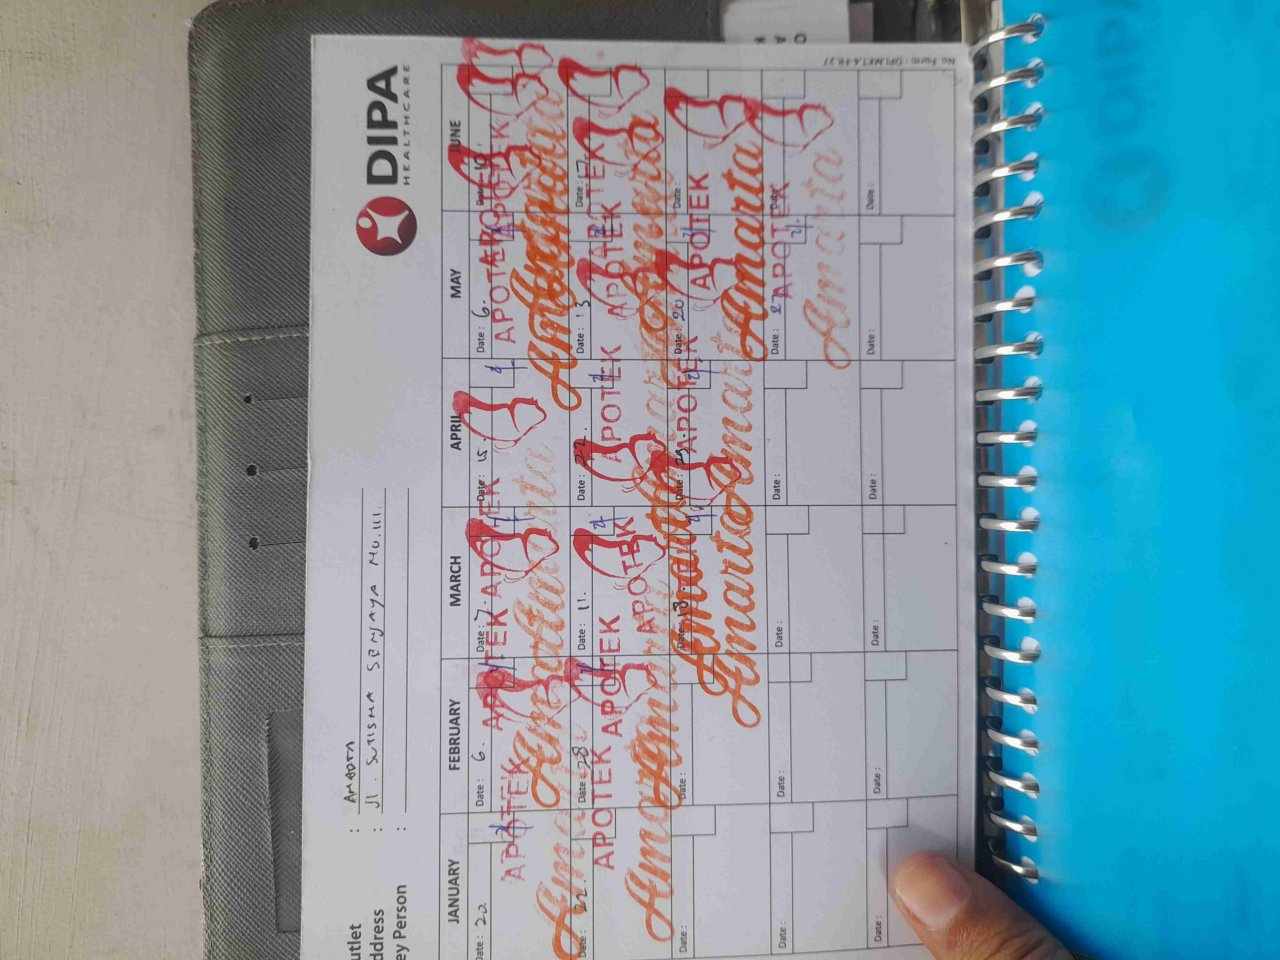 DIPA
HEALTHCARE
utlet : AMARTA
ddress : Jl. SUTISNA SENJAYA NO.111.
ey Person :
JANUARY FEBRUARY MARCH APRIL MAY JUNE
Date : 20 Date : 6. Date : 7. Date : 15. Date : 6. Date : 10
APOTEK APOTEK APOTEK APOTEK APOTEK
Amarta Amarta Amarta Amarta Amarta
Date : 22. Date : 28 Date : 11. Date : 22. Date : 13 Date : 17
APOTEK APOTEK APOTEK APOTEK APOTEK APOTEK
Amarta Amarta Amarta Amarta Amarta
Date : Date : Date : 18. Date : Date : 20 Date :
APOTEK APOTEK
Amarta Amarta Amarta
Date : Date : Date : Date : Date : 27 Date :
APOTEK
Amarta
Date : Date : Date : Date : Date : Date :
No. Form : DPI.MKT.4-FR.27